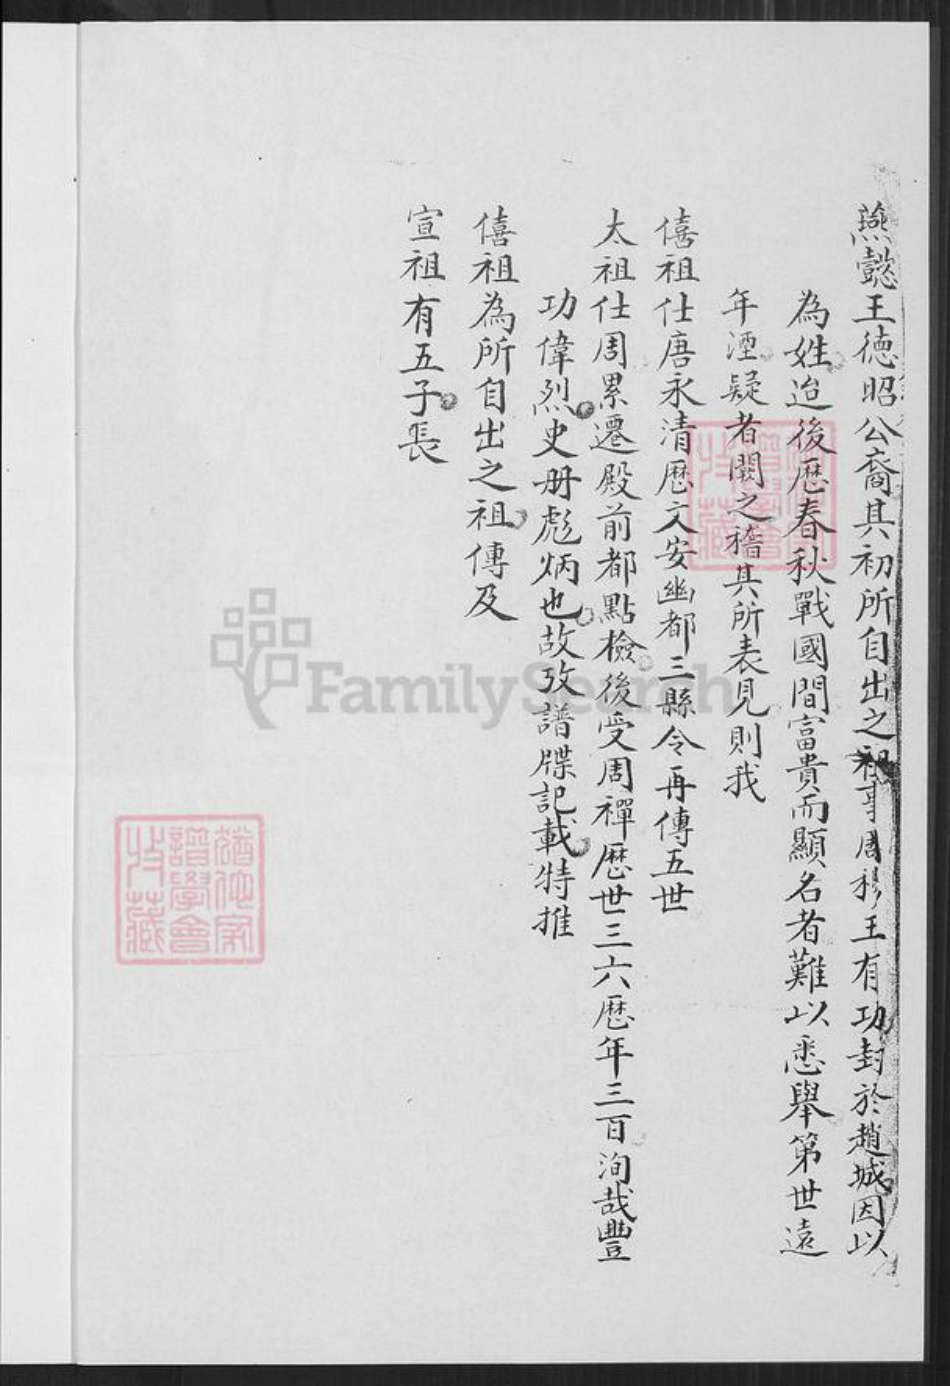 燕懿王德昭公裔其初所自出之祖事周穆王有功封於趙城因以
為姓迨後歷春秋戰國間富貴而顯名者難以悉舉第世遠
年湮疑者闕之稽其所表見則我
僖祖仕唐永清歷文安幽都三縣令再傳五世
太祖仕周累遷殿前都點檢後受周禪歷世三六歷年三百洵哉豐
功偉烈史册彪炳也故攷譜牒記載特推
僖祖為所自出之祖傳及
宣祖有五子長
FamilySearch
譜學會
收藏
譜學會
收藏